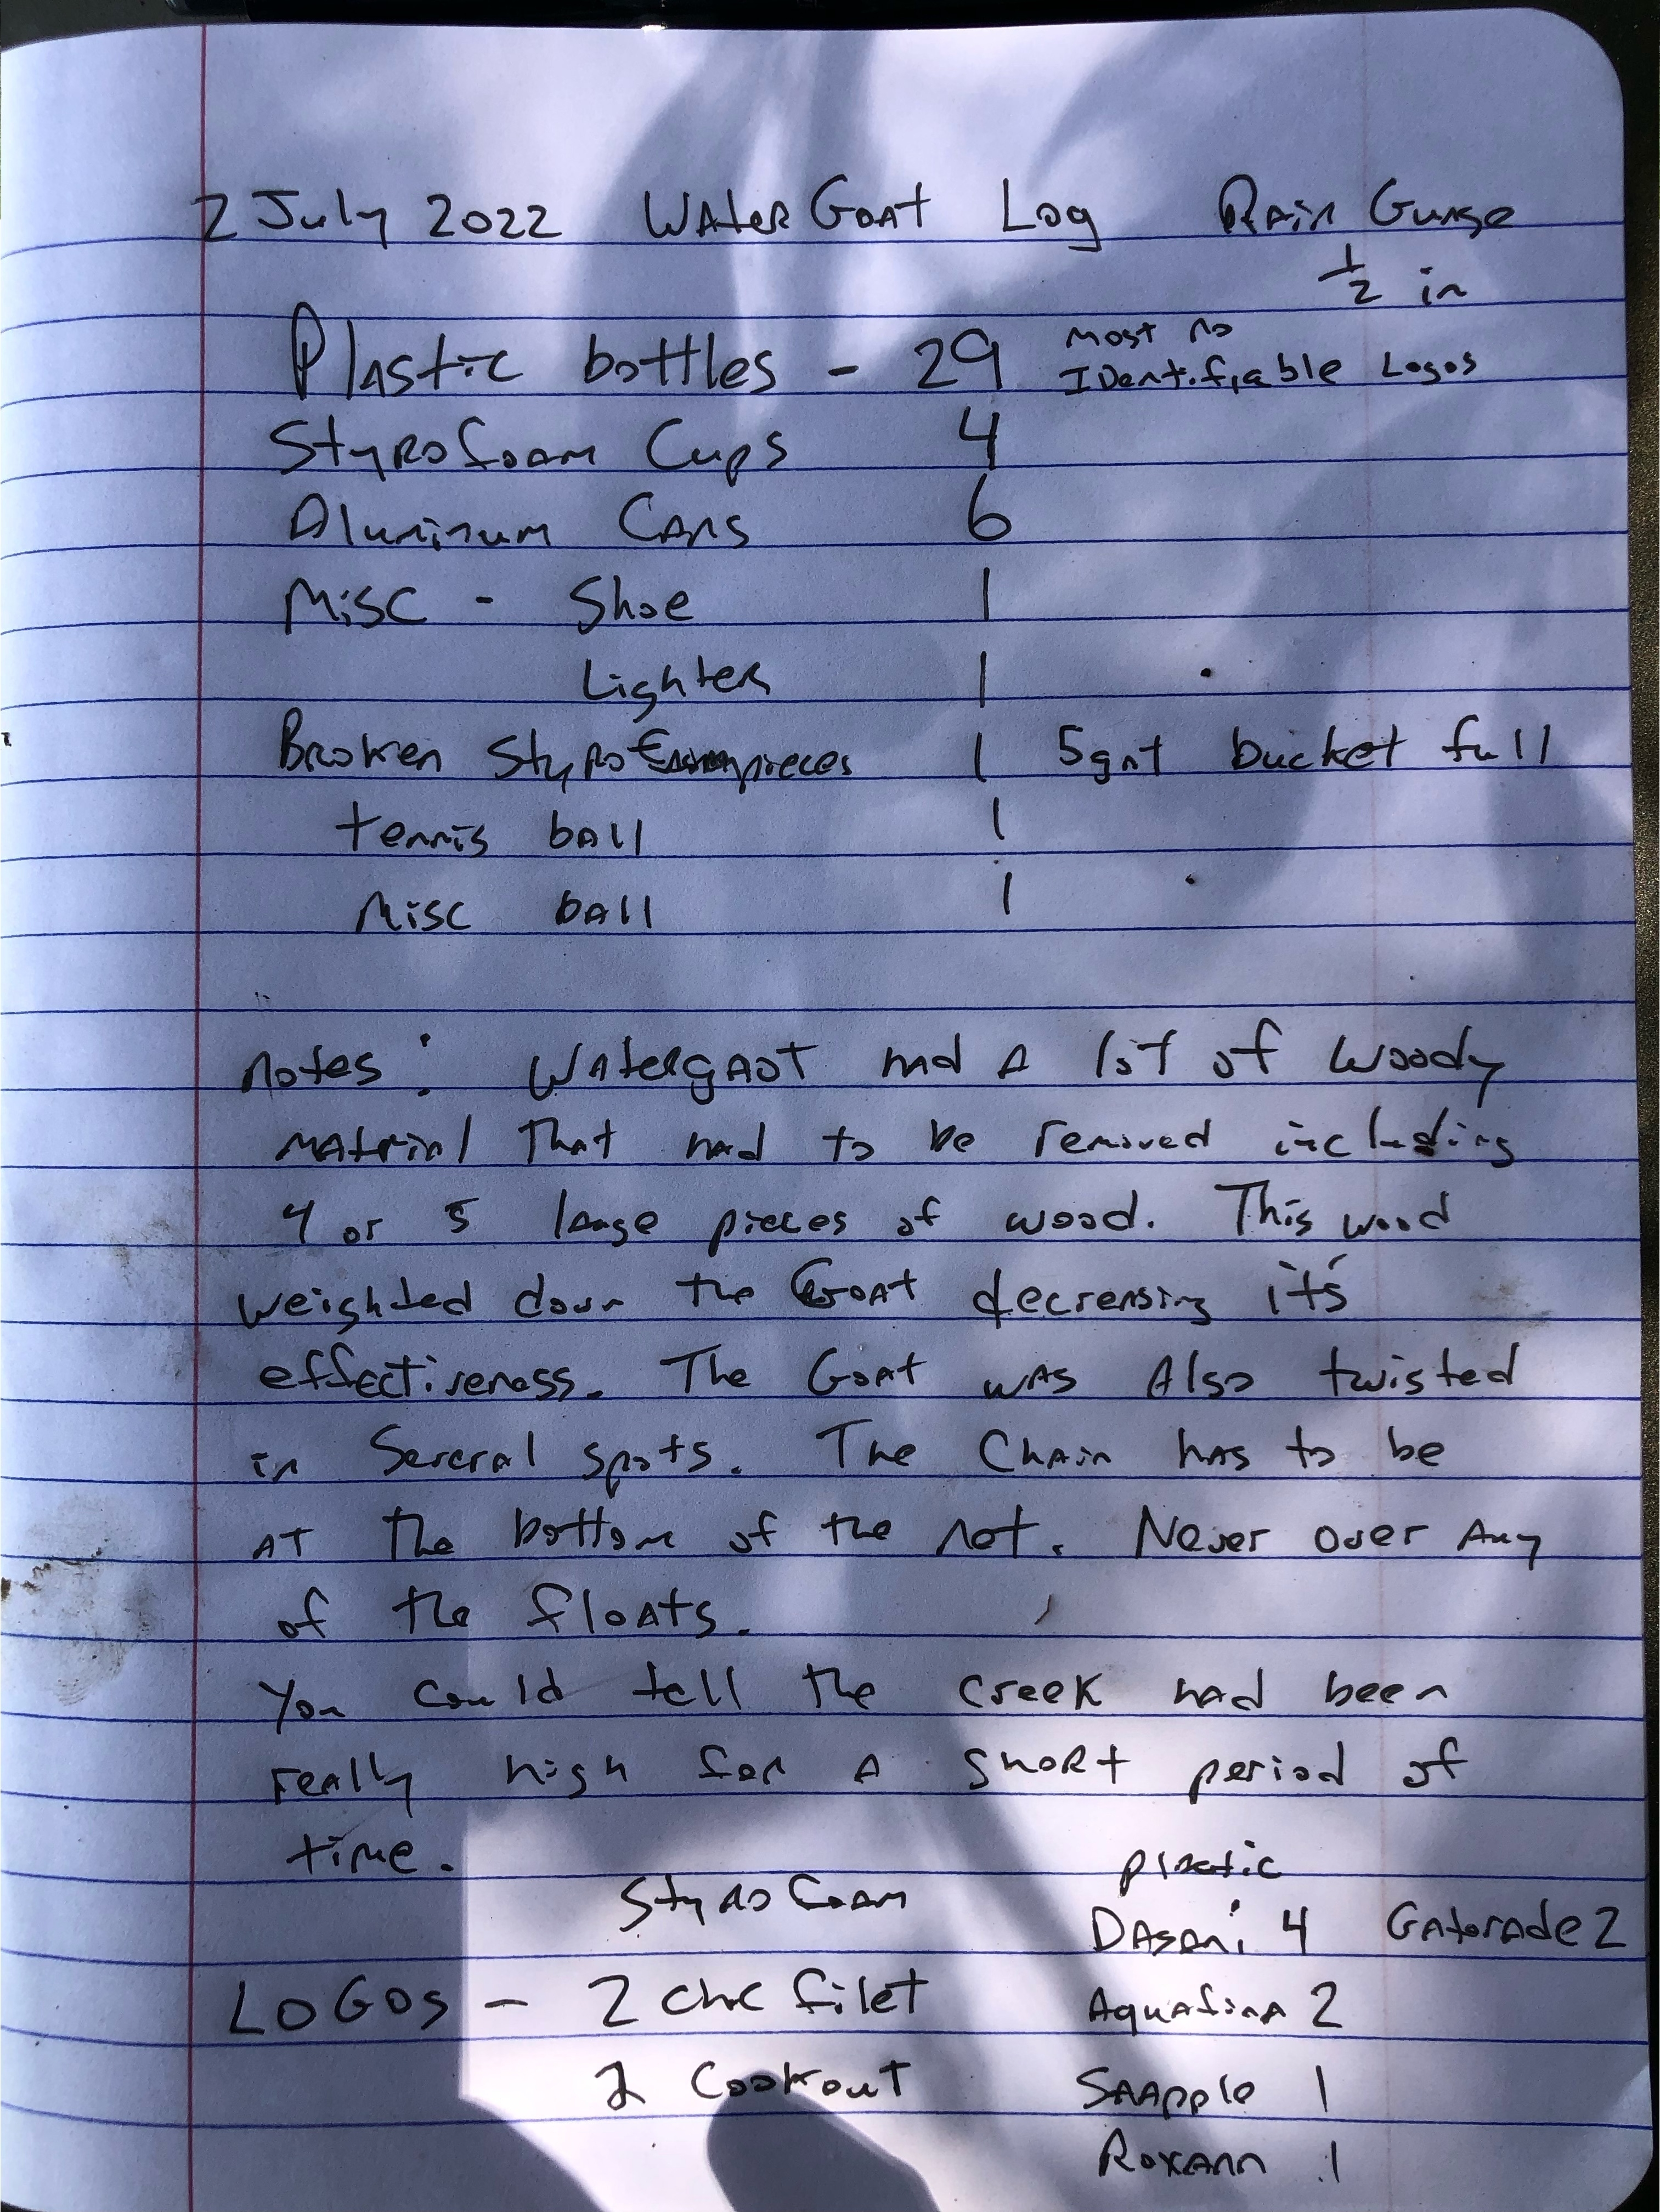 2 July 2022 WAter GoAt Log RAin Guage
1/2 in
PlAstic bottles - 29 most no
IDentifiable Logos
Styrofoam Cups 4
Aluminum CAns 6
Misc - Shoe 1
Lighter 1
Broken Styrofoam pieces 1 5 gal bucket full
tennis bAll 1
Misc bAll 1
notes: WAtergAot had A lot of woody
mAterial That had to be removed including
4 or 5 large pieces of wood. This wood
weighted down the GoAt decreasing it's
effectiveness. The GoAt wAs Also twisted
in Several spots. The ChAin hAs to be
AT the bottom of the net. Never over Any
of the floAts.
You could tell the creek had been
reAlly high for A short period of
time.
Styrofoam plastic
DAsani 4 GAtorAde 2
LOGOS - 2 chic filet AquafinA 2
2 Cookout SnApple 1
RoxAnn 1